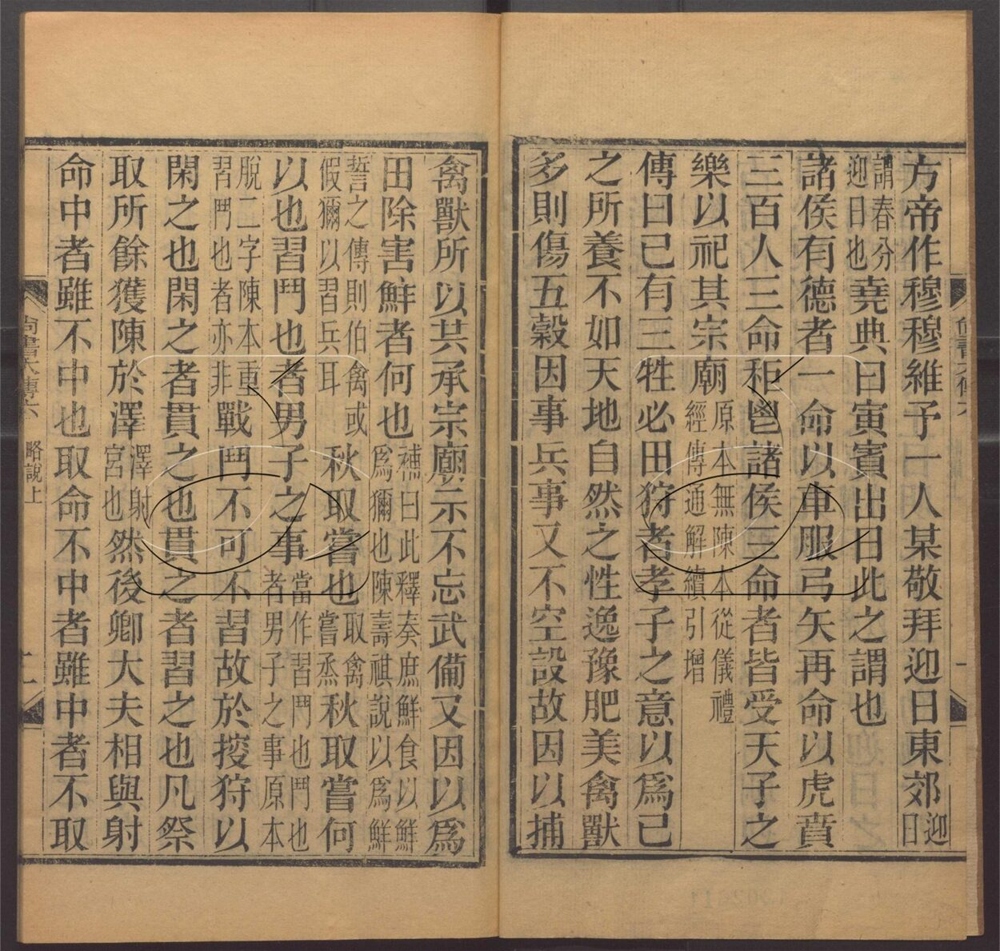 方帝作穆穆維予一人某敬拜迎日東郊迎日
謂春分迎日也堯典曰寅賓出日此之謂也
諸侯有德者一命以車服弓矢再命以虎賁
三百人三命秬鬯諸侯三命者皆受天子之
樂以祀其宗廟原本無陳本從儀禮經傳通解續引增
傳曰已有三牲必田狩者孝子之意以爲己
之所養不如天地自然之性逸豫肥美禽獸
多則傷五穀因事兵事又不空設故因以捕
禽獸所以共承宗廟示不忘武備又因以爲
田除害鮮者何也補曰此釋奏庶鮮食以鮮爲獮也陳壽祺說以爲鮮
誓之傳則伯禽或假獮以習兵耳秋取嘗也取禽嘗烝秋取嘗何
以也習鬥也者男子之事當作習鬥也鬥也者男子之事原本
脫二字陳本重習鬥也者亦非戰鬥不可不習故於搜狩以
閑之也閑之者貫之也貫之者習之也凡祭
取所餘獲陳於澤澤射宮也然後卿大夫相與射
命中者雖不中也取命不中者雖中者不取
尚書大傳六 略說上 二